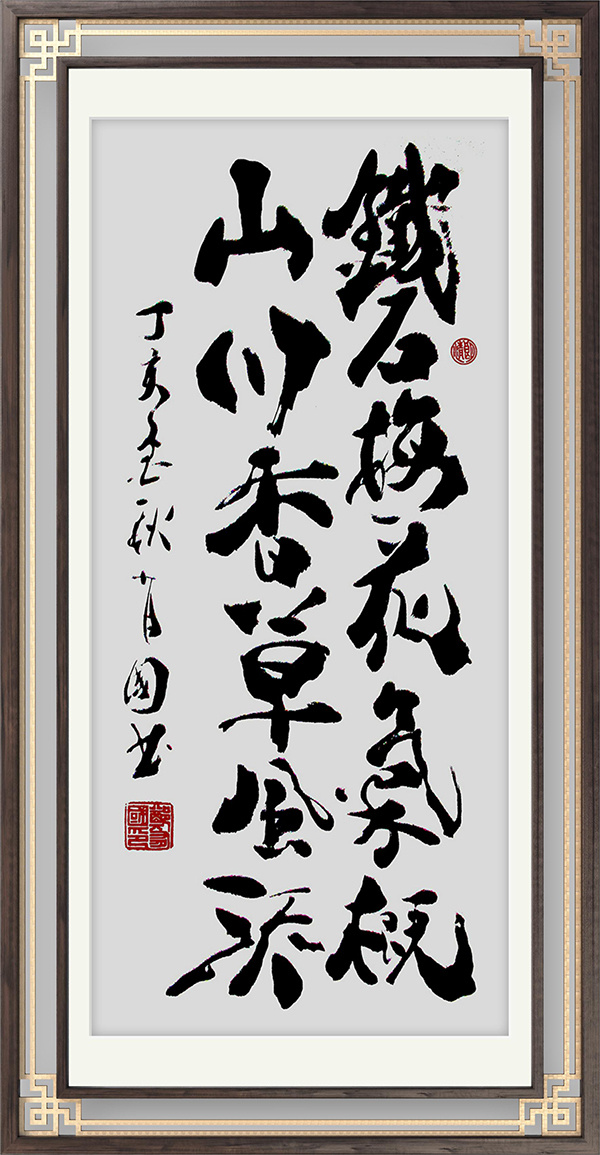 鐵石梅花氣概
山川香草風流
丁亥金秋月國书